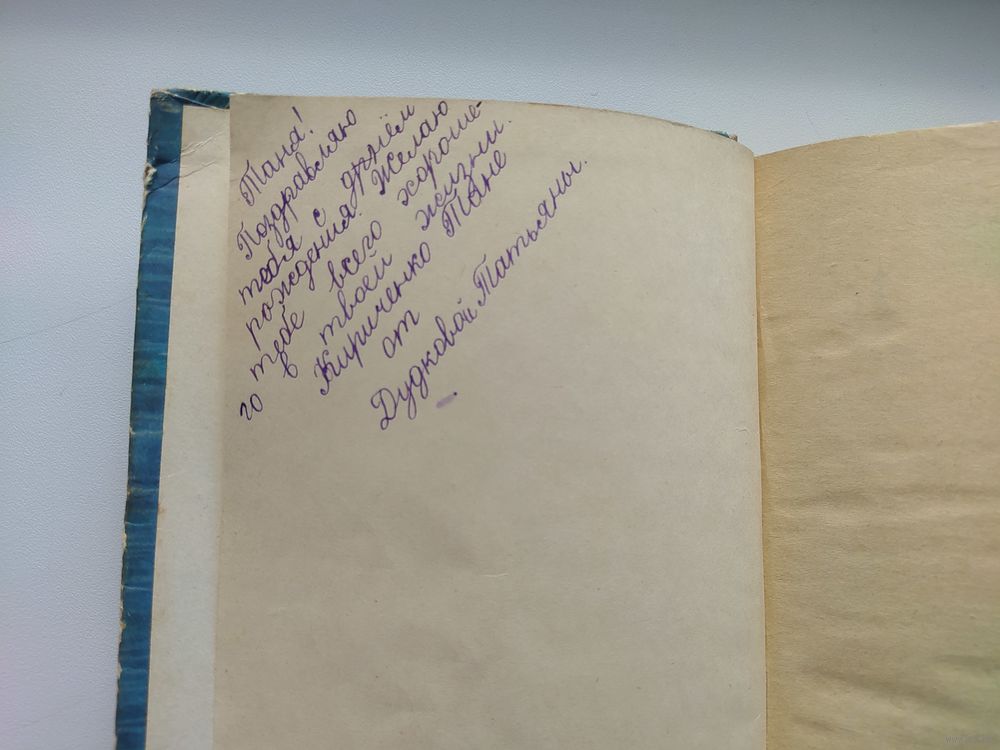 Таня!
Поздравляю
тебя с днём
рождения. Желаю
тебе всего хороше-
го в твоей жизни.
Кириченко Тане
от
Дудковой Татьяны.